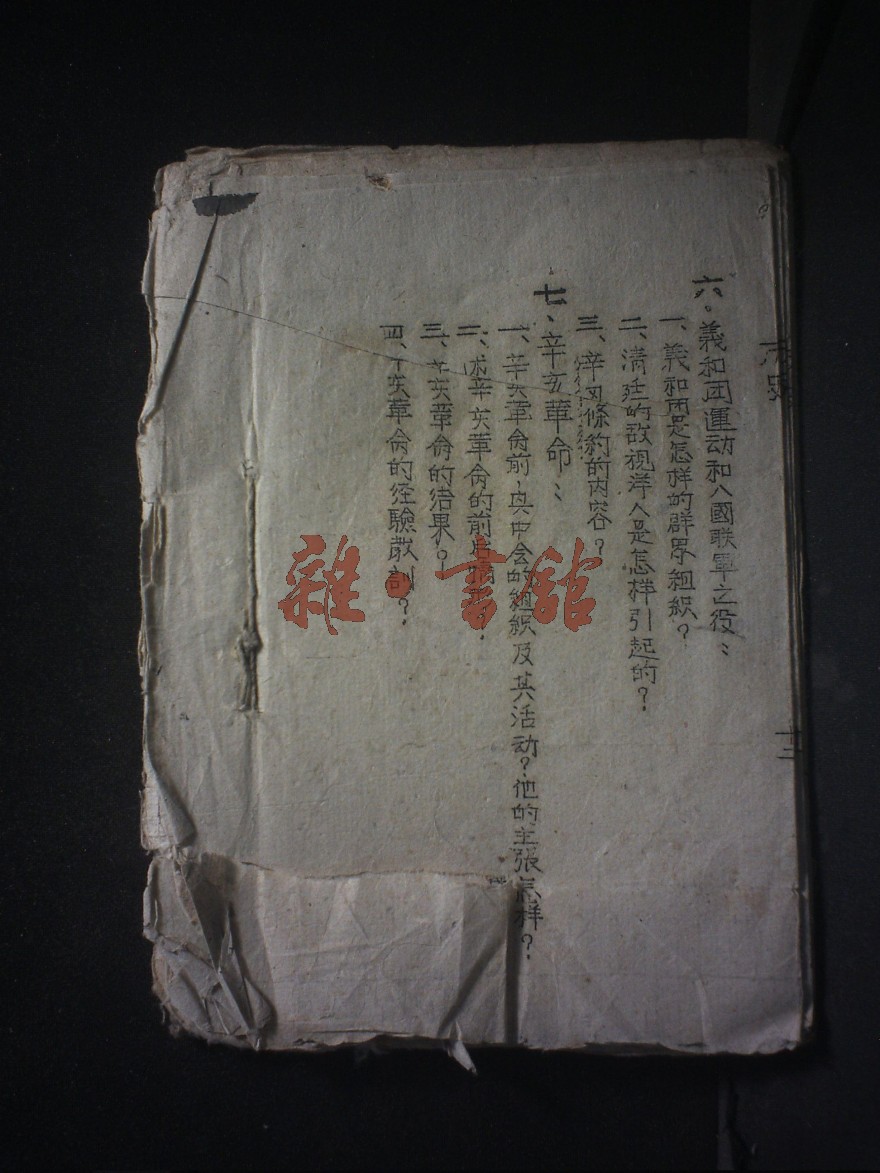 六、義和团運动和八國联軍之役：
一、義和团是怎样的群眾組織？
二、清廷的敌視洋人是怎样引起的？
三、辛丑條約的内容？
七、辛亥革命：
一、辛亥革命前，兴中会的組織及其活动？他的主張怎样？
二、述辛亥革命的前后情？
三、辛亥革命的结果？
四、辛亥革命的经驗教訓？
十二
雜·書館